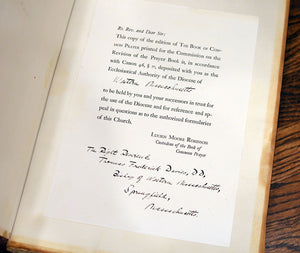 Rt. Rev. and Dear Sir:
This copy of the edition of The Book of Com-
mon Prayer printed for the Commission on the
Revision of the Prayer Book is, in accordance
with Canon 46, § iv, deposited with you as the
Ecclesiastical Authority of the Diocese of
Western Massachusetts
to be held by you and your successors in trust for
the use of the Diocese and for reference and ap-
peal in questions as to the authorized formularies
of this Church.
Lucien Moore Robinson
Custodian of the Book of
Common Prayer
The Right Reverend
Thomas Frederick Davies, D.D.,
Bishop of Western Massachusetts,
Springfield,
Massachusetts.